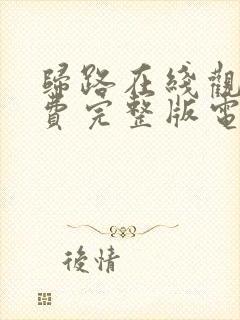 歸路在綫觀
費完整版電
後情